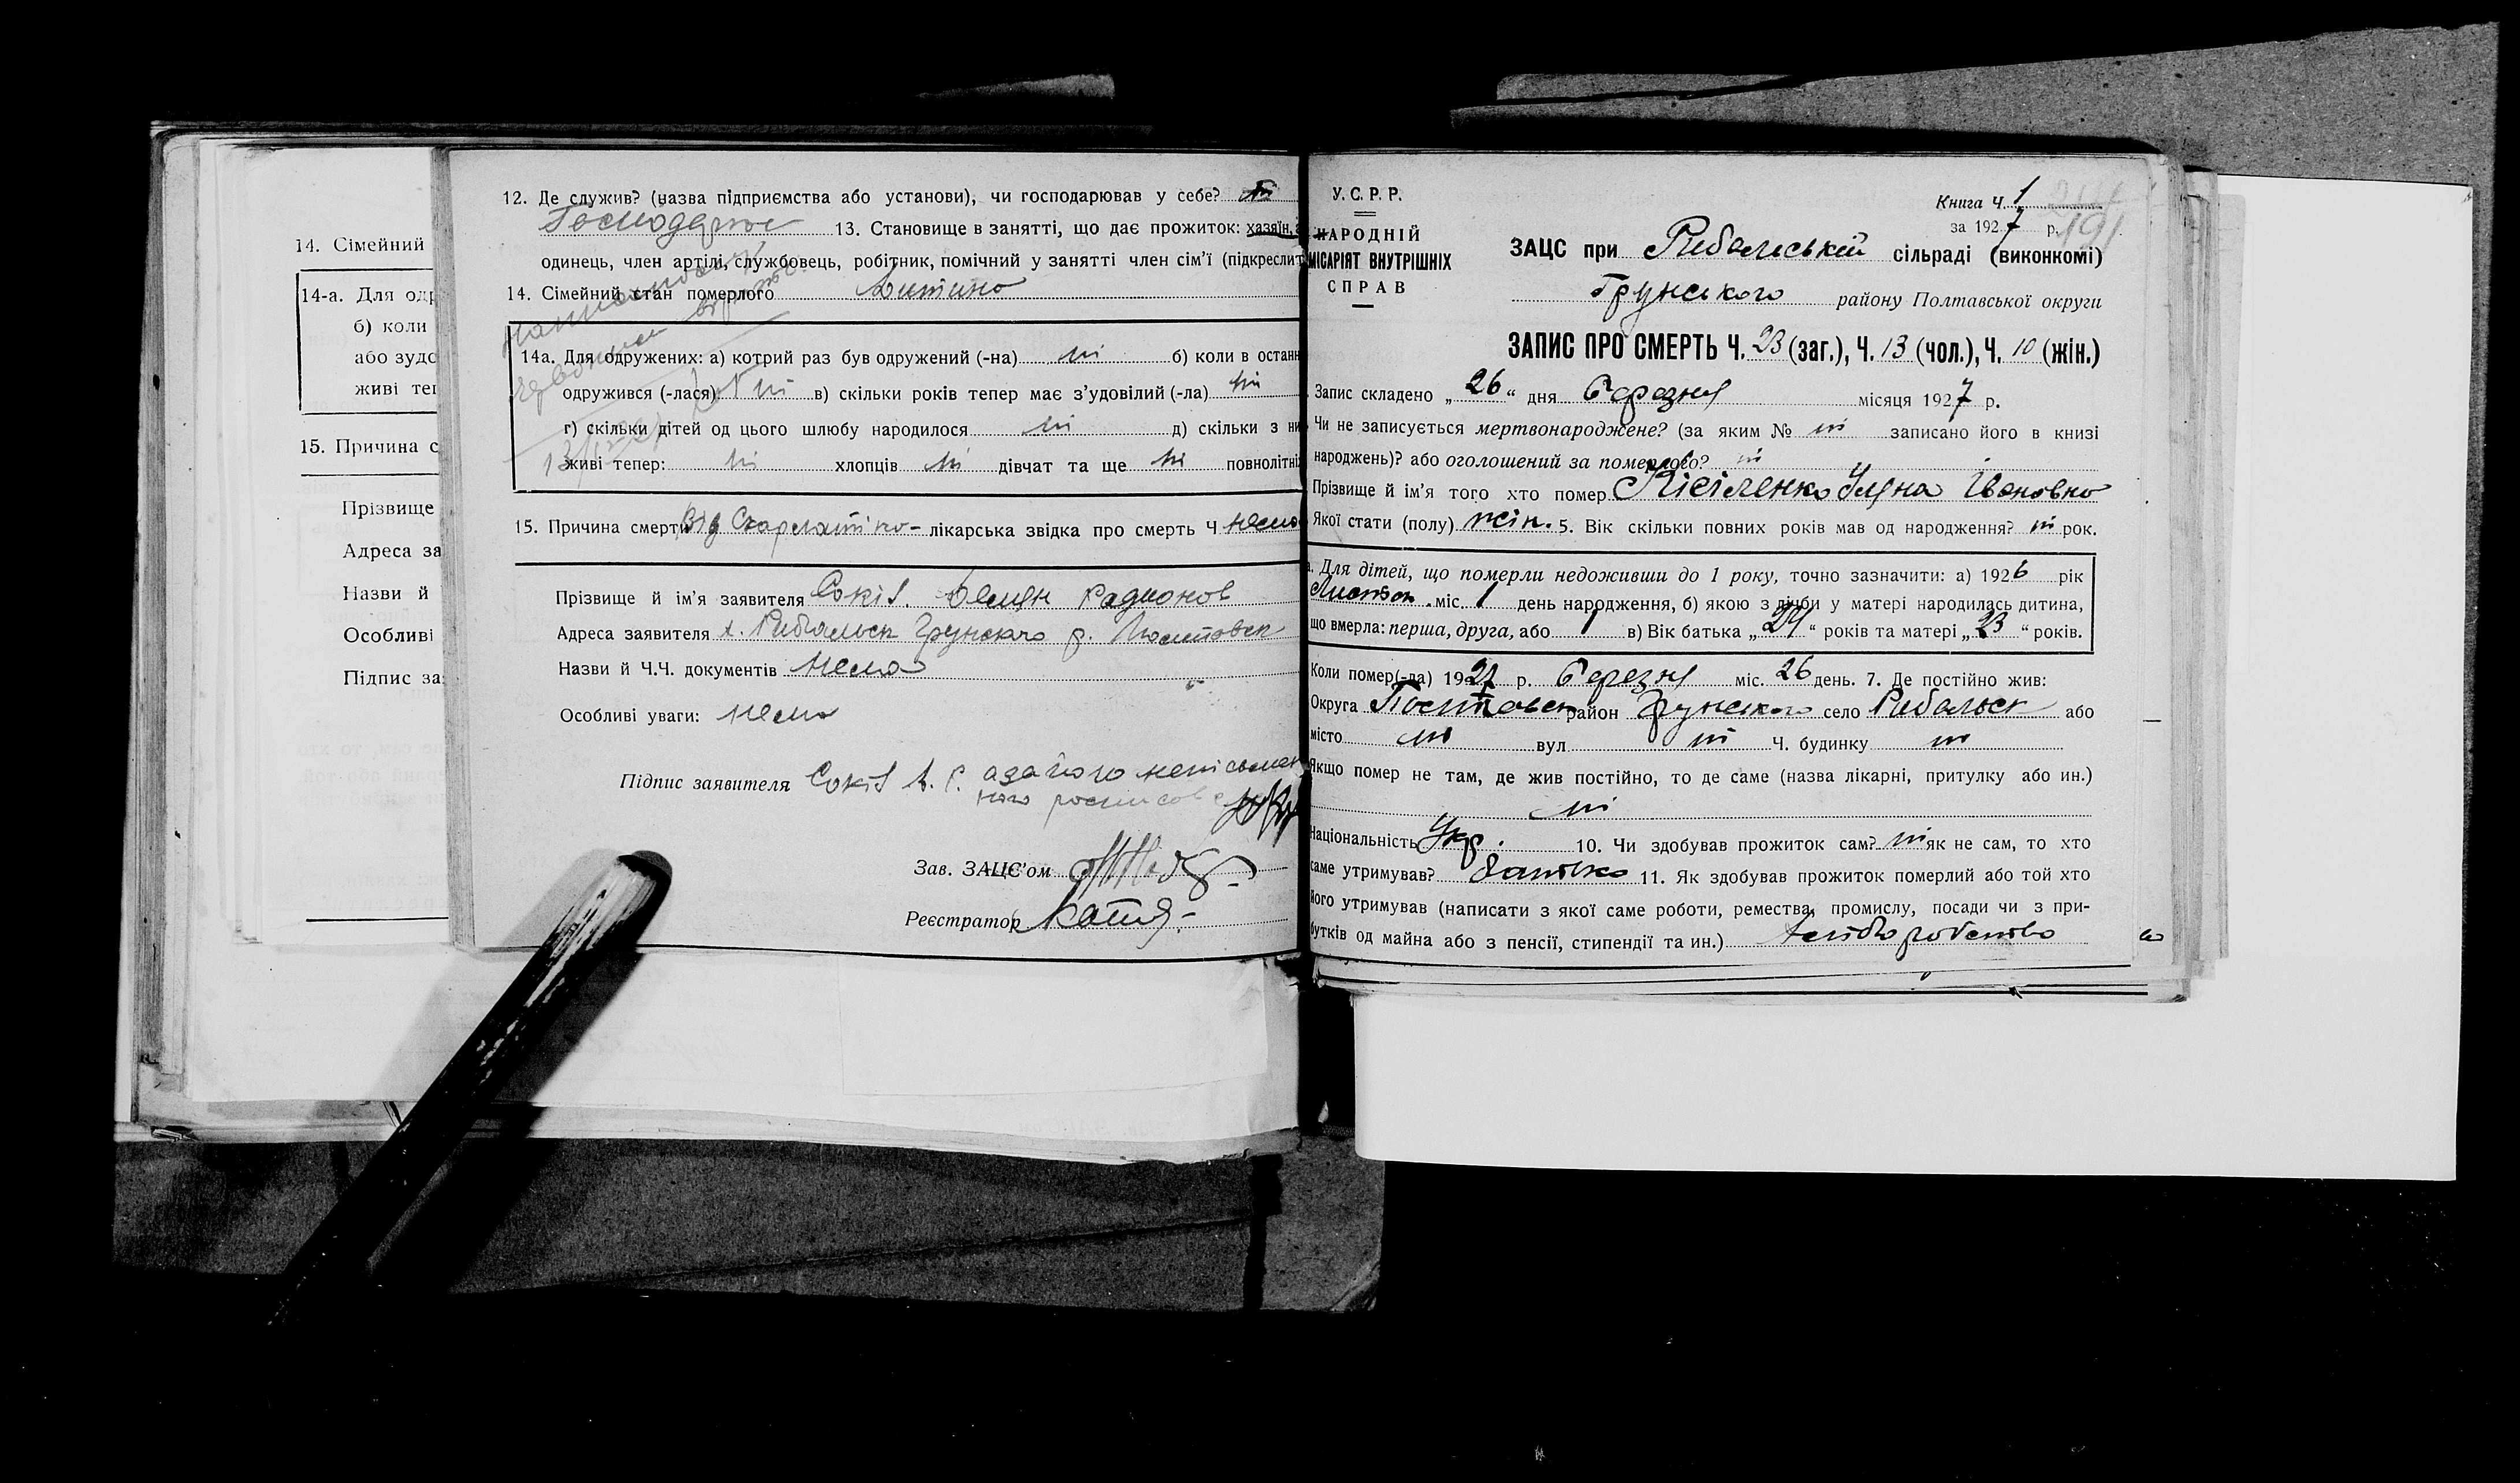 14. Сімейний
14-а. Для одр
б) коли
або зудо
живі теп
15. Причина с
Прізвище
Адреса за
Назви й
Особливі
Підпис за
12. Де служив? (назва підприємства або установи), чи господарював у себе?
13. Становище в занятті, що дає прожиток: хазяїн,
одинець, член артілі, службовець, робітник, помічний у занятті член сім'ї (підкреслит
14. Сімейний стан померлого Дитина
14а. Для одружених: а) котрий раз був одружений (-на) ні б) коли в останн
одружився (-лася) ні в) скільки років тепер має з'удовілий (-ла) ні
г) скільки дітей од цього шлюбу народилося ні д) скільки з ни
живі тепер: ні хлопців ні дівчат та ще ні повнолітні
15. Причина смерти Від Скарлатіна - лікарська звідка про смерть Ч нема
Прізвище й ім'я заявителя Сокіл
Адреса заявителя х. Рибальск Грунского р.
Назви й Ч.Ч. документів нема
Особливі уваги: нема
Підпис заявителя Сокіл
Зав. ЗАЦС'ом
Реєстратор
У.С.Р.Р.
НАРОДНІЙ
МІСАРІЯТ ВНУТРІШНІХ
СПРАВ
Книга Ч. 1
за 1927 р. 191
ЗАЦС при Рибальській сільраді (виконкомі)
Грунського району Полтавської округи
ЗАПИС ПРО СМЕРТЬ Ч. 23 (заг.), Ч. 13 (чол.), Ч. 10 (жін.)
Запис складено „26“ дня Березня місяця 1927 р.
Чи не записується мертвонароджене? (за яким № ні записано його в книзі
народжень)? або оголошений за померлого? ні
Прізвище й ім'я того хто помер Кісіленко Уляна Івановна
Якої стати (полу) жін. 5. Вік скільки повних років мав од народження? ні рок.
а. Для дітей, що померли недоживши до 1 року, точно зазначити: а) 1926 рік
Листоп. міс. 1 день народження, б) якою з лічби у матері народилась дитина,
що вмерла: перша, друга, або 1 в) Вік батька „24“ років та матері „23“ років.
Коли помер(-ла) 1927 р. Березня міс. 26 день. 7. Де постійно жив:
Округа район Грунського село Рибальск або
місто ні вул ні Ч. будинку ні
Якщо помер не там, де жив постійно, то де саме (назва лікарні, притулку або ин.)
ні
Національність Укр. 10. Чи здобував прожиток сам? ні як не сам, то хто
саме утримував? батько 11. Як здобував прожиток померлий або той хто
його утримував (написати з якої саме роботи, ремества, промислу, посади чи з при-
бутків од майна або з пенсії, стипендії та ин.) хліборобство